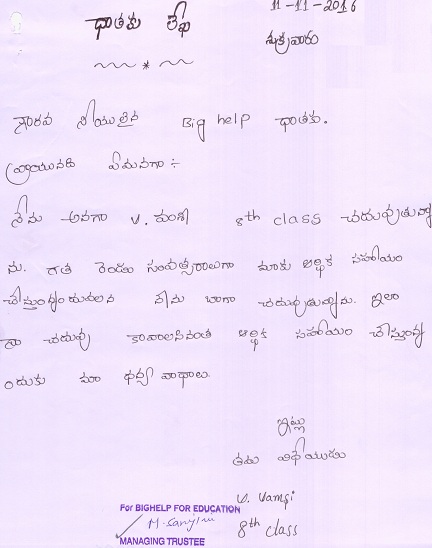 దాతకు లేఖ
11-11-2016
శుక్రవారం
గౌరవ నీయులైన Big help దాతకు.
వ్రాయునది ఏమనగా :-
నేను అనగా V. వంశీ 8th class చదువుతున్నా
ను. గత రెండు సంవత్సరాలుగా మాకు ఆర్థిక సహాయం
చేస్తున్నందువలన నేను బాగా చదువుతున్నాను. ఇలా
నా చదువు కావాలసినంత ఆర్థిక సహాయం చేస్తున్న
ందుకు మా ధన్య వాదాలు.
ఇట్లు
తమ విధేయుడు
V. Vamsi
8th class
For BIGHELP FOR EDUCATION
MANAGING TRUSTEE